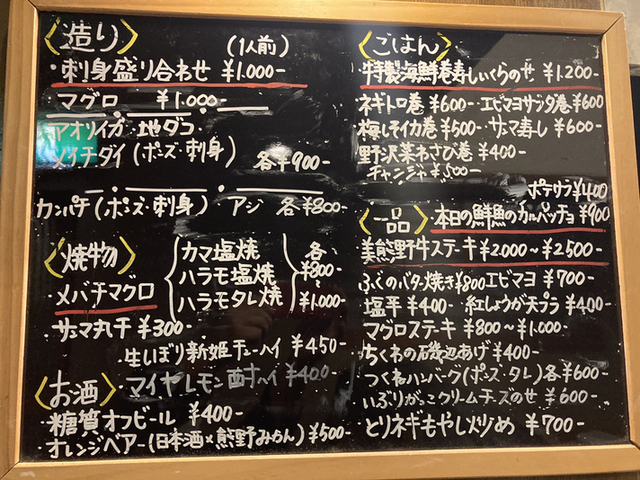 〈造り〉 (1人前)
・刺身盛り合わせ ¥1.000-
マグロ ¥1.000-
アオリイカ・地ダコ
メイチダイ(ポンズ・刺身) 各¥900-
カンパチ(ポンズ・刺身) アジ 各¥800-
〈焼物〉
メバチマグロ
カマ塩焼
ハラモ塩焼
ハラモタレ焼
各¥800-~¥1,000-
サンマ丸干 ¥300-
・生しぼり新姫チューハイ ¥450-
〈お酒〉・マイヤーレモン酎ハイ ¥400-
・糖質オフビール ¥400-
・オレンジベアー(日本酒×熊野みかん) ¥500-
〈ごはん〉
・特製海鮮巻寿しいくらのせ ¥1.200-
ネギトロ巻¥600- エビマヨサラダ巻¥600
梅しそイカ巻¥500- サンマ寿し ¥600-
野沢菜わさび巻 ¥400-
チャンジャ¥500-
ポテサラ¥400
〈一品〉・本日の鮮魚のカルパッチョ ¥900
・美熊野牛ステーキ¥2.000~¥2500-
・ふぐのバター焼き¥800 エビマヨ ¥700-
・塩平¥400- 紅しょうが天プラ ¥400-
・マグロステーキ ¥800~¥1.000-
・ちくわの磯辺あげ ¥400-
・つくねハンバーグ(ポンズ・タレ)各¥600-
・いぶりがっこクリームチーズのせ ¥600-
・とりネギもやし炒め ¥700-